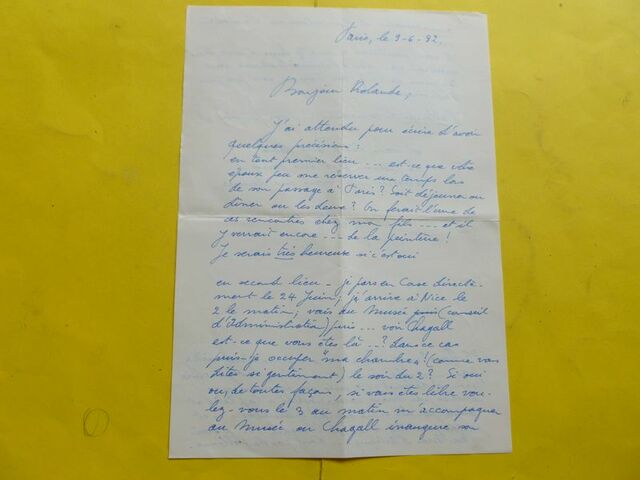 Paris, le 9-6-92.
Bonjour Rolande,
J'ai attendu pour écrire d'avoir
quelques précisions :
en tout premier lieu ... est-ce que votre
époux peut me réserver un temps lors
de son passage à Paris ? Soit déjeuner ou
dîner ou les deux ? On ferait l'une de
ces rencontres chez mon fils ... et il
y verrait encore ... de la peinture !
Je serais très heureuse si c'est oui
en second lieu - je pars en Corse directe-
ment le 24 Juin, j'arrive à Nice le
2 le matin, vais au Musée puis (conseil
d'Administration) puis ... voir Chagall
est-ce que vous êtes là ..? dans ce cas
puis-je occuper "ma chambre" ! (comme vous
dites si gentiment) le soir du 2 ? Si oui
ou, de toutes façons, si vous êtes libre vou-
lez-vous le 3 au matin m'accompagner
au Musée où Chagall inaugure son